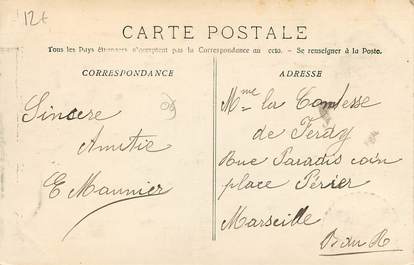 12€
CARTE POSTALE
Tous les Pays étrangers n'acceptent pas la Correspondance au recto. - Se renseigner à la Poste.
CORRESPONDANCE
Sincère
Amitié
E Maunier
ADRESSE
Mme la Comtesse
de Feray
Rue Paradis coin
place Périer
Marseille
B du R